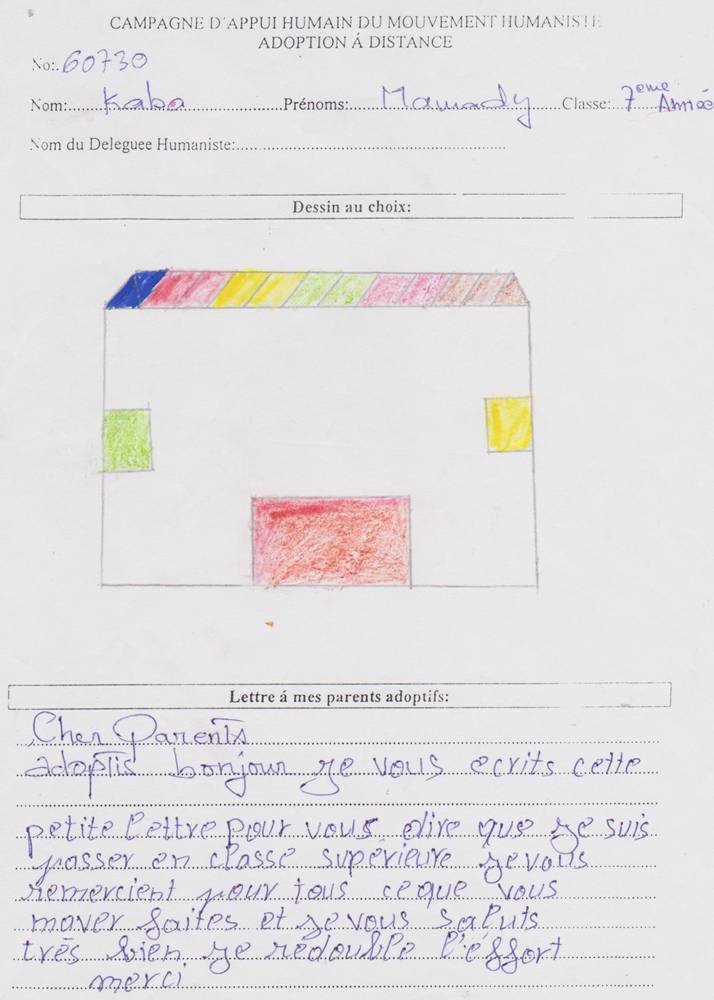 CAMPAGNE D'APPUI HUMAIN DU MOUVEMENT HUMANISTE
ADOPTION Á DISTANCE
No:. 60730
Nom:......Kaba..................Prénoms:......Mamady......Classe:. 7eme Année
Nom du Deleguee Humaniste:....................................................
Dessin au choix:
Lettre á mes parents adoptifs:
Cher Parents
adoptis bonjour je vous ecrits cette
petite lettre pour vous dire que je suis
passer en classe superieure je vous
remercient pour tous ceque vous
maver faites et je vous saluts
très bien je redouble l'éffort
merci